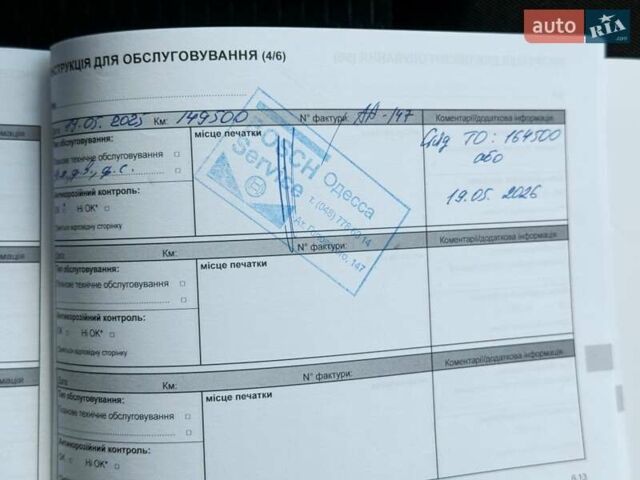 auto RIA.com
НСТРУКЦІЯ ДЛЯ ОБСЛУГОВУВАННЯ (4/6)
Дата 19.05.2025 Км: 149500 N° фактури: АА-147 Коментарі/додаткова інформація
Тип обслуговування:
Планове технічне обслуговування
Антикорозійний контроль:
OK Ні OK*
Дивіться відповідну сторінку
місце печатки
BOSCH
Service
Одесса
т. (048)
147
ТО: 164500
або
19.05.2026
Дата Км: N° фактури: Коментарі/додаткова інформація
Тип обслуговування:
Планове технічне обслуговування
Антикорозійний контроль:
OK Ні OK*
Дивіться відповідну сторінку
місце печатки
Дата Км: N° фактури: Коментарі/додаткова інформація
Тип обслуговування:
Планове технічне обслуговування
Антикорозійний контроль:
OK Ні OK*
місце печатки
6.13